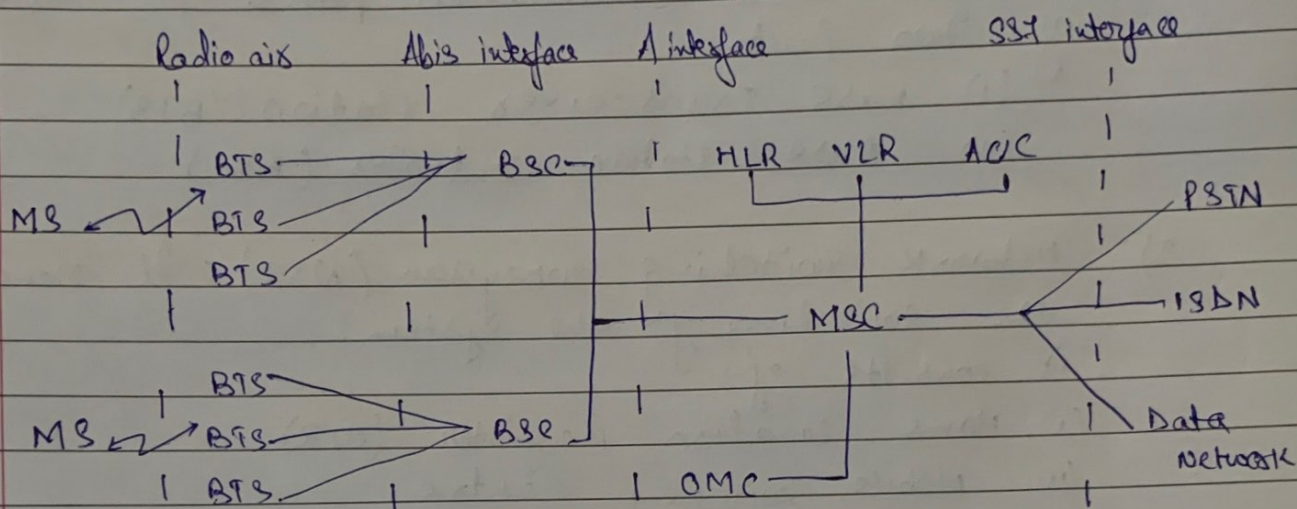 Radio air Abis interface A interface SS7 interface
BTS BSC HLR VLR AUC
PSTN
MS BTS
BTS
MSC ISDN
BTS
MS BTS BSC Data
Network
BTS OMC